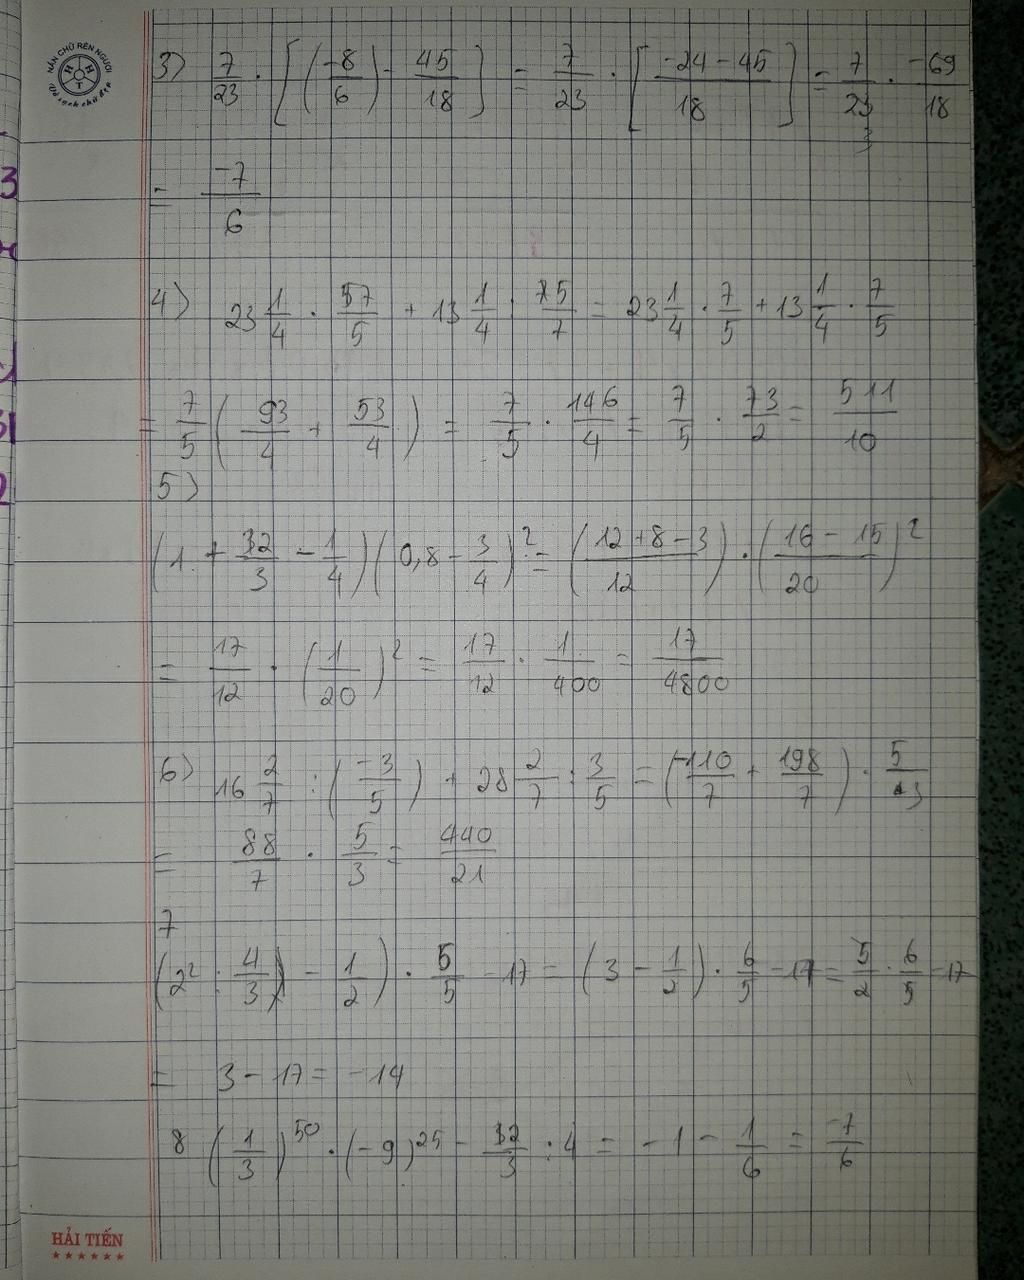 NẮN CHỮ RÈN NGƯỜI
H H T
Vở sạch chữ đẹp
3) 7/23 . [(-8/6) - 45/18] = 7/23 . [(-24 - 45)/18] = 7/23 . -69/18
= -7/6
4) 23 1/4 . 57/5 + 13 1/4 : 15/7 = 23 1/4 . 7/5 + 13 1/4 . 7/5
= 7/5 (93/4 + 53/4) = 7/5 . 146/4 = 7/5 . 73/2 = 511/10
5)
(1 + 32/3 - 1/4)(0,8 - 3/4)² = ((12 + 8 - 3)/12) . ((16 - 15)/20)²
= 17/12 . (1/20)² = 17/12 . 1/400 = 17/4800
6) 16 2/7 : (-3/5) + 28 2/7 : 3/5 = (-110/7 + 198/7) . 5/3
= 88/7 . 5/3 = 440/21
7
(2² : 4/3) - 1/2) . 5/5 - 17 = (3 - 1/2) . 6/5 - 17 = 5/2 . 6/5 - 17
= 3 - 17 = -14
8 (1/3)^50 . (-9)^25 - 32/3 : 4 = -1 - 1/6 = -7/6
HẢI TIẾN
★★★★★★